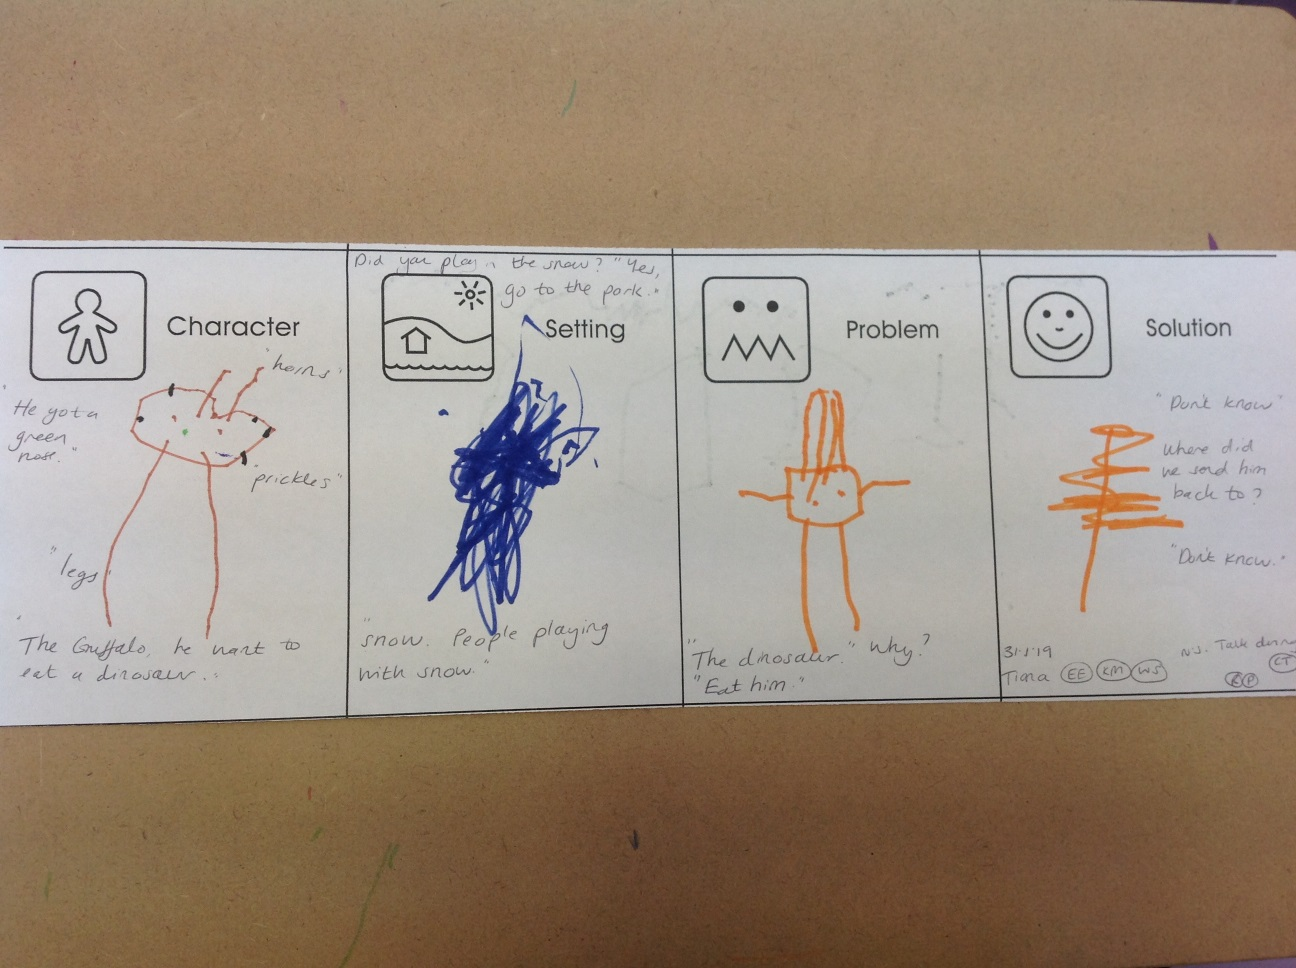 Character
"horns"
"He got a
green
nose."
"prickles"
"legs"
"The Gruffalo, he want to
eat a dinosaur."
Did you play in the snow? "Yes,
go to the park."
Setting
"snow. People playing
with snow."
Problem
"The dinosaur." Why?
"Eat him."
Solution
"Don't know"
Where did
we send him
back to?
"Don't know."
31.1.19
N.S. Talk during
Tiana EE KM WS
CT